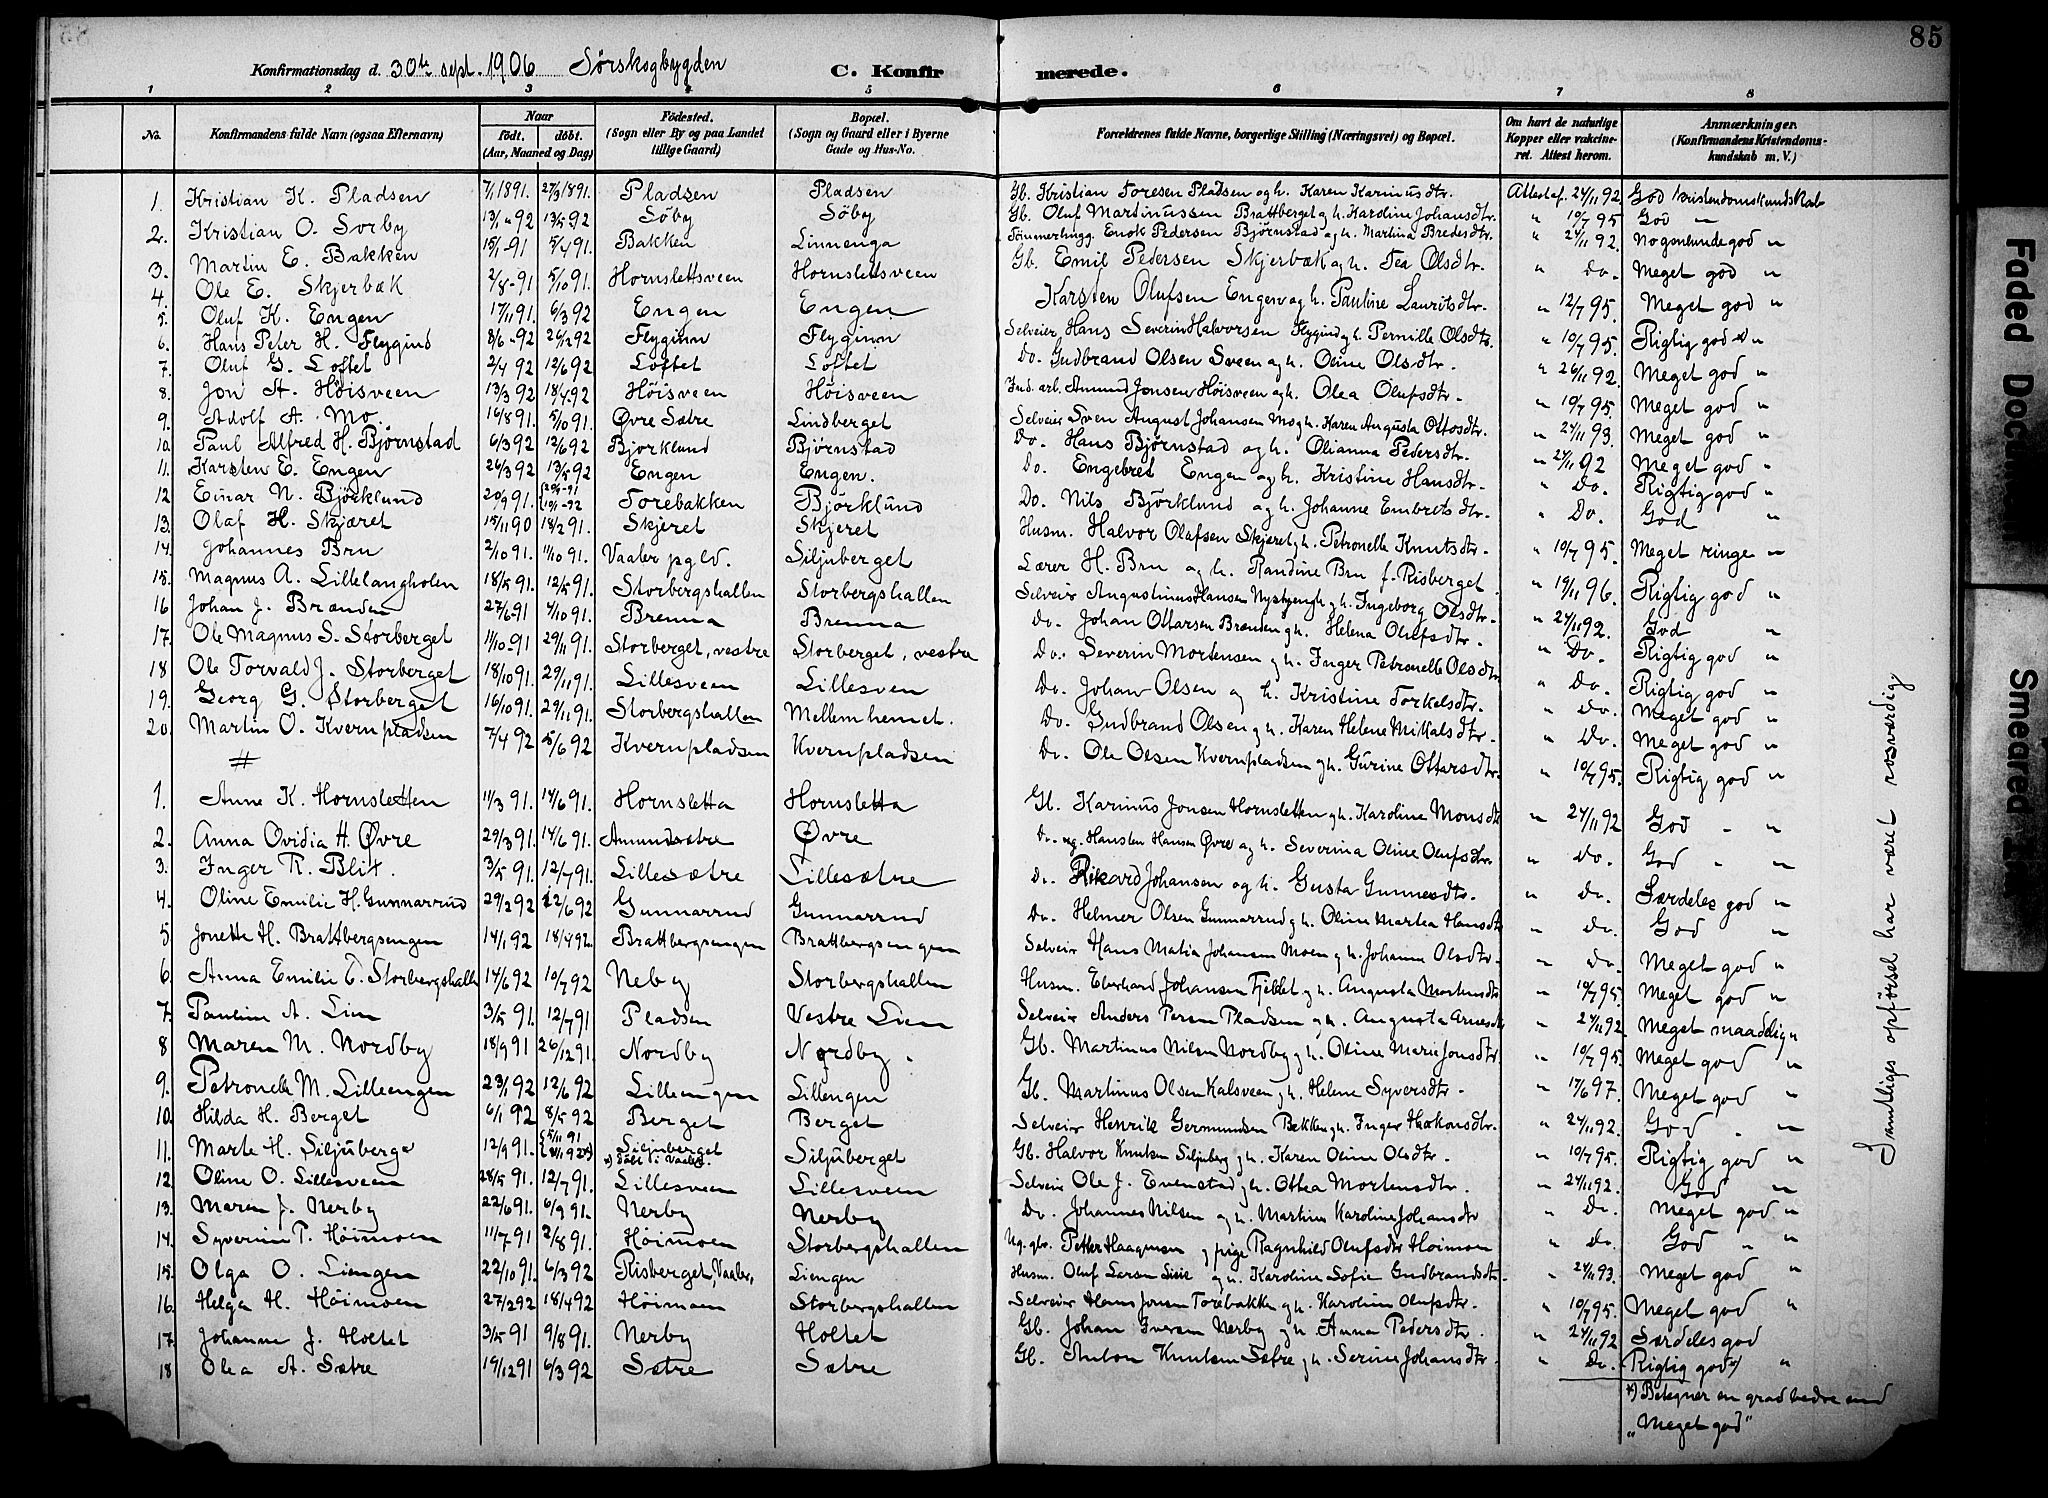 85
Konfirmationsdag d. 30te sept. 1906 Sørskogbygden C. Konfirmerede.
1 2 3 4 5 6 7 8
No. Konfirmandens fulde Navn (ogsaa Efternavn) Naar født. døbt. (Aar, Maaned og Dag) Fødested. (Sogn eller By og paa Landet tillige Gaard) Bopæl. (Sogn og Gaard eller i Byerne Gade og Hus-No. Forældrenes fulde Navne, borgerlige Stilling (Næringsvei) og Bopæl. Om havt de naturlige Kopper eller vakcineret. Attest herom. Anmærkninger. (Konfirmandens Kristendomskundskab m. V.)
1. Kristian K. Pladsen 7/1 1891. 27/3 1891. Pladsen Pladsen Gb. Kristian Toresen Pladsen og h. Karen Karinusdtr. Attest af 24/11 92 God kristendomskundskab
2. Kristian O. Sorby 13/1 92 13/5 92 Söby Söby Gb. Oluf Martinussen Brattberget og h. Karoline Johansdtr. " 10/7 95 God "
3. Martin E. Bakken 15/1 91 5/4 91. Bakken Linnenga Tømmerhugg. Enok Pedersen Bjørnstad og h. Martina Bredesdtr. " 24/11 92. Nogenlunde god "
4. Ole E. Skjerbæk 2/8 91 5/10 91. Hornslettsveen Hornslettsveen Gb. Emil Pedersen Skjerbæk og h. Tea Olsdtr. " Do. Meget god "
5. Oluf K. Engen 17/11 91. 6/3 92 Engen Engen Karsten Olufsen Engen og h. Pauline Lauritsdtr. " 12/7 95. Meget god "
6. Hans Peter H. Flygind 8/6 92 26/12 92 Flyginn Flyginn Selveier Hans Severin Halvorsen Flygind og h. Pernille Olsdtr. " 10/7 95. Rigtig god "
7. Oluf G. Loftet 2/4 92 12/6 92 Loftet Loftet Do. Gudbrand Olsen Sveen og h. Oline Olsdtr. " 26/11 92. Meget god "
8. Jon A. Höisveen 13/3 92 18/4 92 Höisveen Höisveen Ind. arb. Amund Jonsen Höisveen og h. Olea Olufsdtr. " 10/7 95 Meget god "
9. Adolf A. Mo. 16/8 91. 5/10 91. Øvre Sætre Lindberget Selveier Sven August Johansen Mo og h. Karen Augusta Ottosdtr. " 24/11 93. Meget god "
10. Paul Alfred H. Bjørnstad 6/3 92 12/6 92 Bjorklund Bjørnstad Do. Hans Bjørnstad og h. Olianna Pedersdtr. " 24/11 92 Meget god "
11. Karsten E. Engen 26/3 92 13/5 92 Engen Engen. Do. Engebret Engen og h. Kristine Hansdtr. " Do. Rigtig god "
12 Einar N. Björklund 20/9 91. 20/9 91 10/1 92 Torebakken Björklund Do. Nils Björklund og h. Johanne Embretsdtr. " Do. God "
13. Olaf H. Skjæret 15/11 90 18/2 91. Skjeret Skjeret Husm. Halvor Olafsen Skjæret og h. Petronella Knutsdtr. " 10/7 95. Meget ringe "
14. Johannes Bru 2/10 91. 11/10 91. Vaaler pgld. Siljuberget Lærer H. Bru og h. Randine Bru f. Risberget " 19/11 96. Rigtig god "
15. Magnus A. Lillelangholen 18/5 91. 12/5 91. Storbergshallen Storbergshallen Selveier Augustinus Hansen og h. Ingeborg Olsdtr. " 24/11 92. God "
16 Johan J. Brænden 27/6 91 4/10 91. Brenna Brenna Do. Johan Ottarsen Brænden og h. Helena Olufsdtr. " Do. Rigtig god "
17. Ole Magnus S. Storberget 11/10 91 29/11 91. Storberget, vestre Storberget, vestre Do. Severin Mortensen og h. Inger Petronelle Olsdtr " Do. Rigtig god "
18 Ole Torvald J. Storberget 18/10 91. 29/11 91. Lillesveen Lillesven Do. Johan Olsen og h. Kristine Torkelsdtr. " Do. Meget god "
19. Georg G. Storberget 16/10 91. 29/11 91. Storbergshallen Mellemhemet. Do. Gudbrand Olsen og h. Karen Helene Mikalsdtr. " Do. Meget god "
20. Martin O. Kvernpladsen 7/4 92 5/6 92 Kvernpladsen Kvernpladsen Do. Ole Olsen Kvernpladsen og h. Gurine Ottarsdtr. " 10/7 95. Rigtig god "
#
1. Anne K. Hornsletten 11/3 91. 14/6 91. Hornsletta Hornsletta Gb. Karinus Jonsen Hornsletten og h. Karoline Monsdtr " 24/11 92 God "
2. Anna Ovidia H. Øvre 29/3 91. 14/6 91. Amundsætre Øvre Do. Hansten Hansen Øvre og h. Severina Oline Olufsdtr. " Do. God "
3. Inger R. Blix. 3/5 91. 12/7 91. Lillesætre Lillesætre Do. Rikard Johansen og h. Gusta Gunnesdtr. " Do. Særdeles god "
4. Oline Emilie H. Gunnarrud 29/2 92 12/6 92 Gunnarrud Gunnarrud Do. Helmer Olsen Gunnarrud og h. Oline Martea Hansdtr " Do. God "
5. Jonette H. Brattbergsengen 14/1 92 18/4 92. Brattbergsengen Brattbergsengen Selveier Hans Matia Johansen Moen og h. Johanne Olsdtr. " Do. Meget god "
6. Anna Emilie E. Storbergshallen 14/6 92 10/7 92 Neby Storbergshallen Husm. Eberhard Johansen Fjellet og h. Augusta Martinsdtr " 10/7 95. Meget god "
7. Pauline A. Lien 3/5 91. 12/7 91 Pladsen Vestre Lien Selveier Anders Persen Pladsen og h. Augusta Arnesdtr " 24/11 92 Meget maadelig "
8 Maren M. Nordby 18/9 91 26/12 91 Nordby Nordby. Gb. Martinus Nilsen Nordby og h. Oline Marie Jonsdtr " 10/7 95. Meget god "
9. Petronelle M. Lilleengen 23/1 92 12/6 92 Lillengen Lillengen Gb. Martinus Olsen Kalsveen og h. Helene Syversdtr. " 17/6 97. Meget god "
10. Hilda H. Berget 6/1 92 8/5 92 Berget Berget Selveier Henrik Germundsen Bakken og h. Inger Haakonsdtr. " 24/11 92. God "
11. Marte H. Siljuberge 12/9 91. 5/11 91 Siljuberget *) døbt i Vaaler. Siljuberget Gb. Halvor Knutsen Siljuberg og h. Karen Oline Olsdtr. " 10/7 95. Rigtig god "
12. Oline O. Lillesveen 28/5 91. 12/7 91. Lillesveen Lillesveen Selveier Ole J. Evenstad og h. Othea Mortensdtr. " 24/11 92. God "
13. Maren J. Nerby 22/6 91. 6/9 91. Nerby Nerby Do. Johannes Nilsen og h. Martine Karoline Johansdtr " Do. Meget god "
14. Syverine P. Höimoen 11/7 91 2/8 91. Höimoen Storbergshallen Ug. gbr. Petter Haagensen og pige Ragnhild Olufsdtr Höimoen " Do. God "
15. Olga O. Liengen 22/10 91. 6/3 92 Risberget, Vaaler, Liengen Husm. Oluf Larsen Lien og h. Karoline Sofie Gudbrandsdtr. " 24/11 93. Meget god "
16. Helga H. Höimoen 27/2 92 18/4 92 Höimoen Storbergshallen Selveier Hans Jonsen Torebakken og h. Karoline Olufsdtr. " 10/7 95. Meget god "
17. Johanne J. Holtet 3/5 91 9/8 91. Nerby Holtet Gb. Johan Iversen Nerby og h. Anna Pedersdtr. " 24/11 92 Særdeles god
18 Olea A. Sætre 19/12 91 6/3 92 Sætre Sætre Gb. Anton Knutsen Sætre og h. Serine Johansdtr. " Do. Rigtig god *) "
*) Betegner en grad bedre end
"Meget god"
Samtliges opførsel har været rosværdig
Faded Doc
Smeared